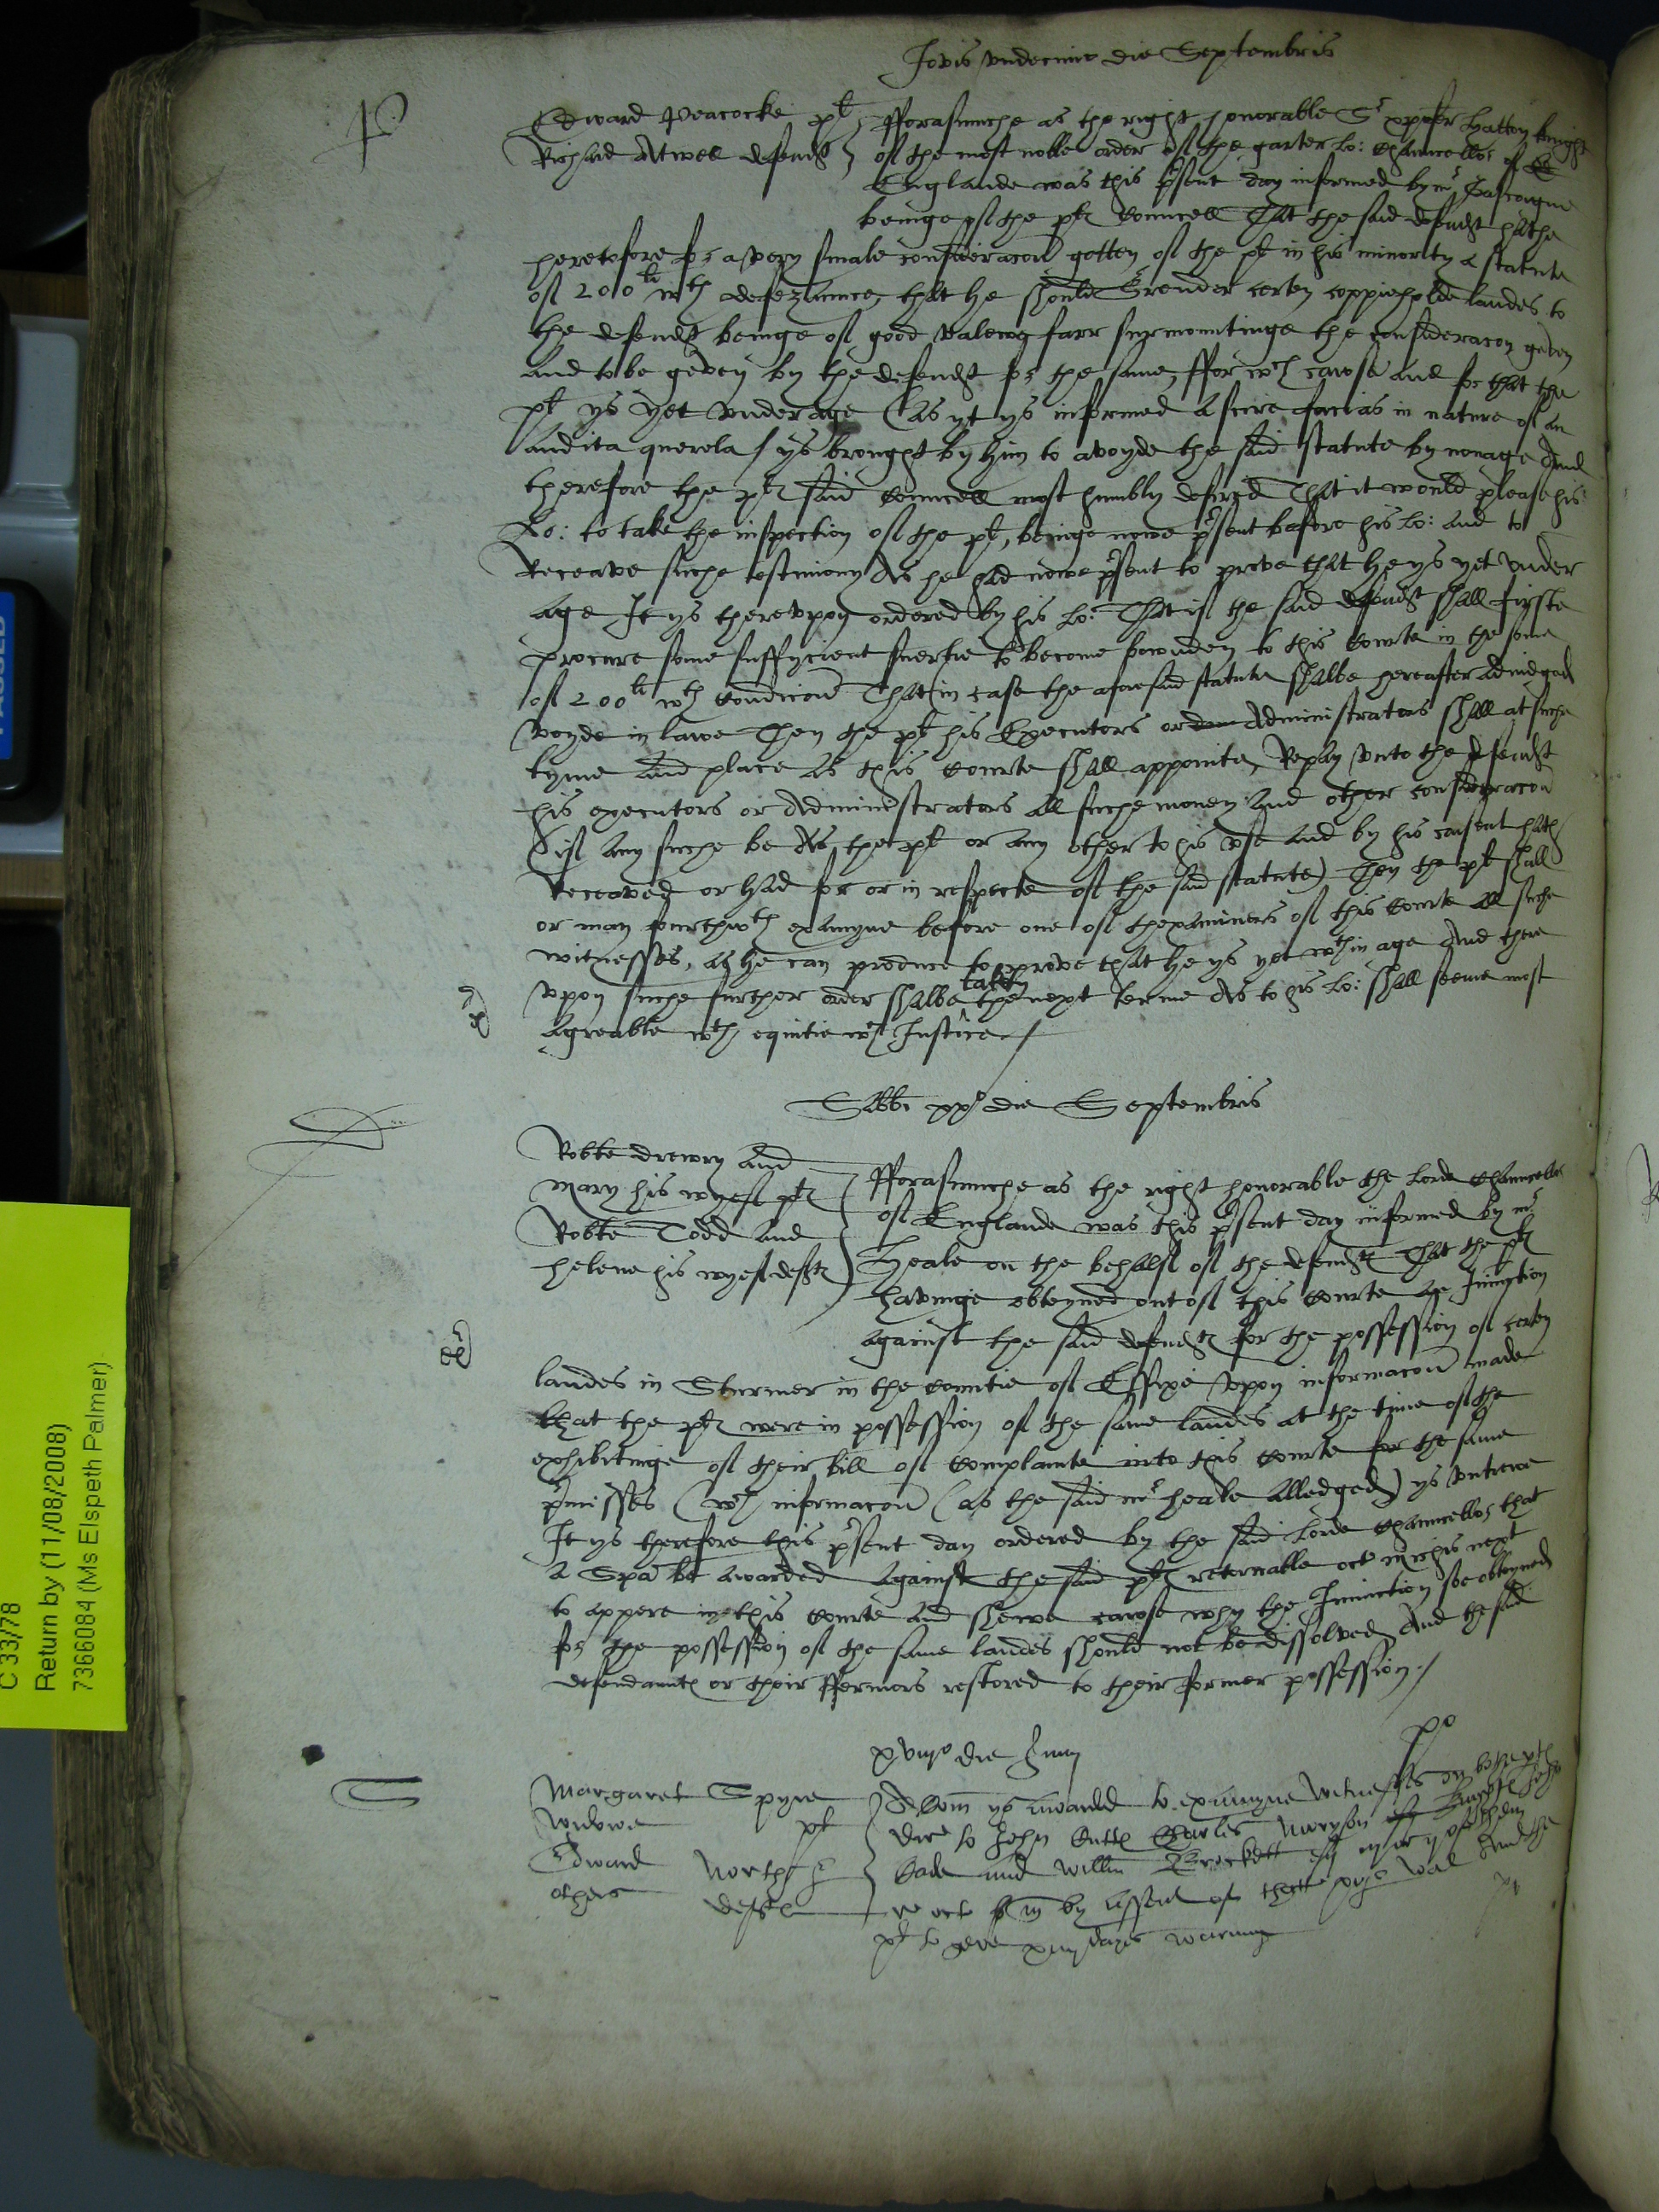 Jovis undecimo die Septembris
P
Edward Peacocke pl
Richard Atwell defendt
fforasmuche as the right honorable Sr xpofer Hatton knight
of the most noble order of the garter Lo: Chauncellor of
Englande was this psent day informed by mr Gascoigne
beinge of the pltes Councell That the said defendt hathe
heretofore for a very smale consideracon gotten of the pl in his minority a statute
of 200li wth a defezaunce, that he should Srender certen coppieholde landes to
the defendt beinge of good valewe farr surmountinge the consideracon geven
and to be geven by the defendt for the same, ffor wch cawse and for that the
pl ys yet under age (as yt ys informed a scire facias in nature of an
audita querela / ys brought by him to avoyde the said statute by nonage And
therefore the pltes said Councell most humbly desired That it would please his
Lo: to take the inspection of the pl, beinge nowe psent before his Lo: and to
Receave suche testimony As he had nowe psent to prove that he ys yet under
age It ys thereupon ordered by his Lo: That if the said defendt shall firste
procure some suffycient suertie to become bounden to this Courte in the some
of 200li wth Condicon That in case the aforesaid statute shalbe hereafter adiudged
voyde in lawe Then the pl his Executors or Administrators shall at suche
tyme and place as this Courte shall appointe, Repay unto the defendt
his executors or Administrators all suche money and other consideracon
(if any suche be As the pl or any other to his use and by his consent hath
Receaved or had for or in respecte of the said statute) Then the pl shall
or may fourthwth examyne before one of thexaminers of this Courte all suche
witnesses, as he can produce to prove that he ys yet wthin age And there
upon suche further order shalbe taken the next terme As to his Lo: shall seeme most
Agreable wth equitie wth Justice /
Sabbi xxo die Septembris
Robte Drewry and
Mary his wyef pltes
Robte Todd and
Helene his wyef deftes
fforasmuche as the right honorable the Lorde Chauncellor
of Englande was this psent day informed by mr
Heale on the behalf of the defendtes That the pltes
havinge obteyned out of this Courte an Iniunction
against the said defendtes for the possession of certen
landes in Sturmer in the Countie of Essexe upon informacon made
that the pltes were in possession of the same landes at the time of the
exhibitinge of their bill of Complainte into this Courte for the same
pmisses (wch informacon (as the said mr heale alledged) ys untrewe
It ys therefore this psent day ordered by the said Lorde Chauncellor that
a Spa be awarded against the said pltes retornable octo michis next
to appere in this Courte and shewe cawse why the Iniunction soe obteyned
for the possession of the same landes should not be dissolved And the said
defendauntes or their ffermors restored to their former possession /
die Juny
Margaret Spyre
widowe pl
Edward North
others deftes
A Com ys awarded to examyne witnesses on bothe ptes
dire to John Cutts Charles Moryson
and Willm Brockett
by assent of
pl to geve xiiij dayes warning
C 33/78
Return by (11/08/2008)
7366084 (Ms Elspeth Palmer)